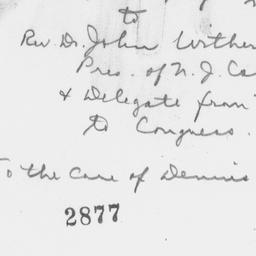 to
Rev. Dr. John Wither
Pres. of N. J. Co
& Delegate from
to Congress.
To the Care of Dennis
2877